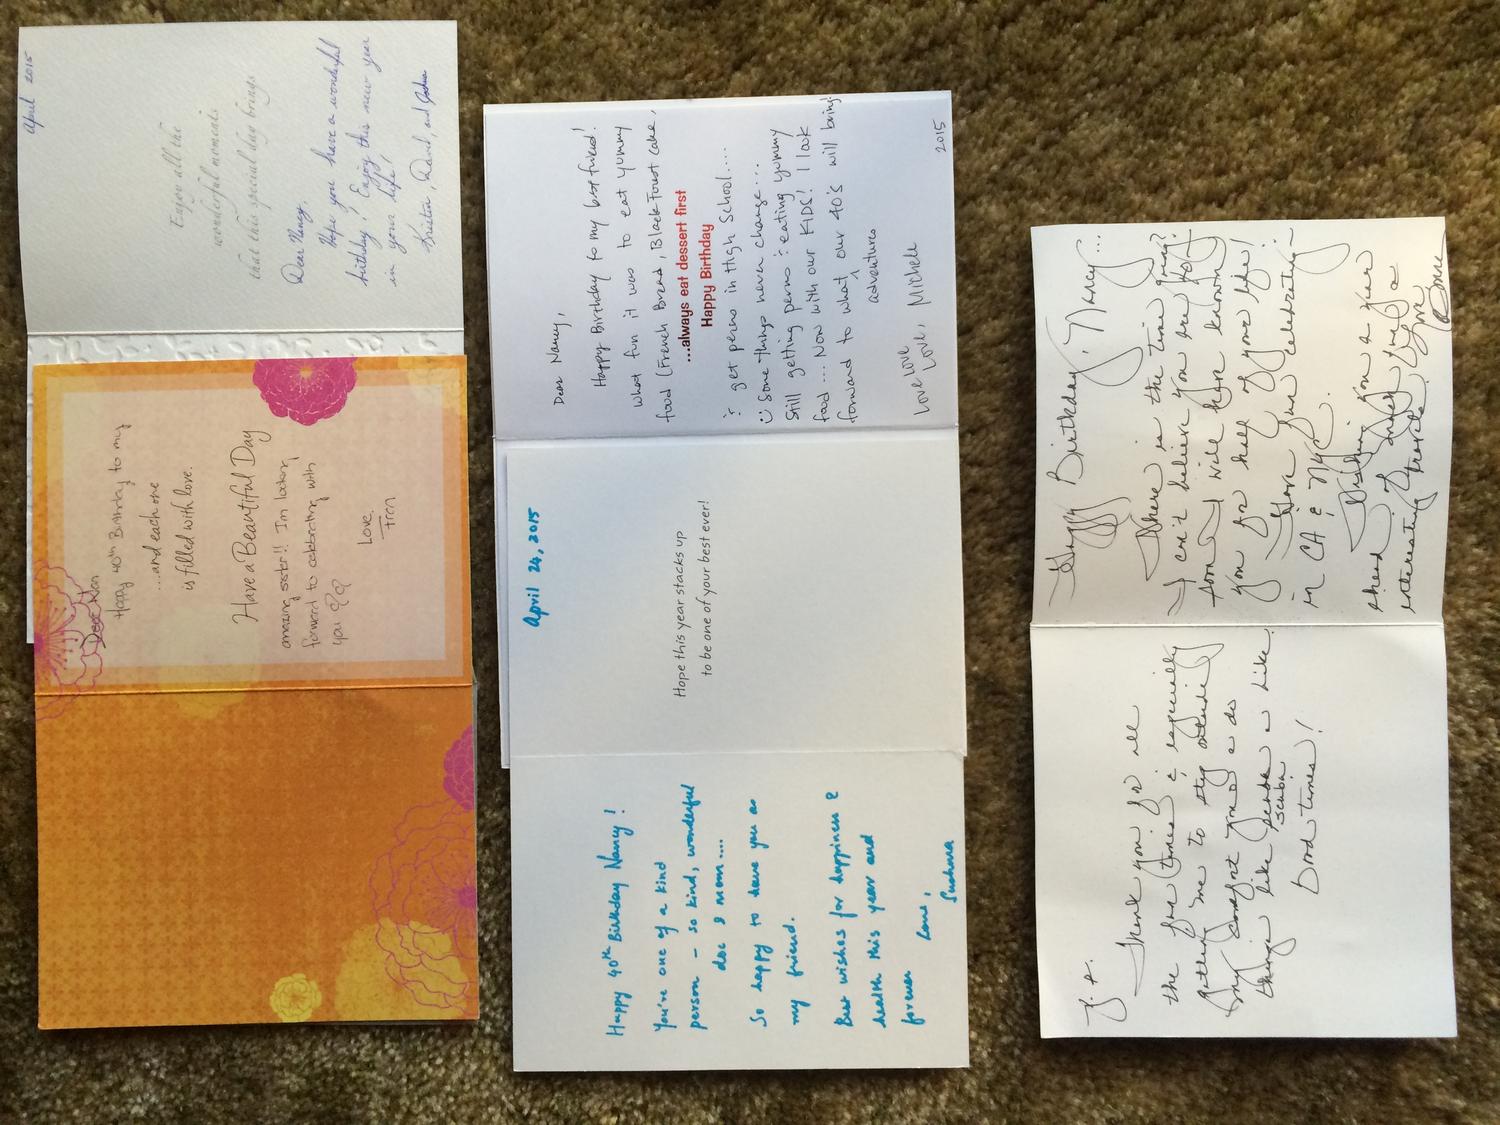 April 2015
Enjoy all the
wonderful moments
that this special day brings
Dear Nancy,
Hope you have a wonderful
birthday! Enjoy this new year
in your life!
Kristin, David, and Joshua
Dear Nan
Happy 40th Birthday to my
....and each one
is filled with love.
Have a Beautiful Day
amazing sister!! I'm looking
forward to celebrating with
you
Love
Fren
Dear Nancy,
Happy Birthday to my best friend!
What fun it was to eat yummy
food (French Bread, Black Forest Cake,
...always eat dessert first
Happy Birthday
: get perms in High School....
Some things never change....
Still getting perms : eating yummy
food.... Now with our KIDS! I look
forward to what our 40's will bring!
adventures
Love Love Love, Michele
2015
April 24, 2015
Hope this year stacks up
to be one of your best ever!
Happy 40th Birthday Nancy!
You're one of a kind
person – so kind, wonderful
doc & mom....
So happy to have you as
my friend.
Best wishes for happiness &
health this year and
forever
Love,
Sushma
Happy Birthday, Nancy...
Where is the time going?
I can't believe you are 40!
Soon I will have known
you for half of your life!
Have fun celebrating
in CA & NYC.
Wishing you a year
ahead of
interesting travels!
Thank you for all
the fun times & especially
getting me to step outside
my comfort zone & do
things like scuba
scuba
Good times!